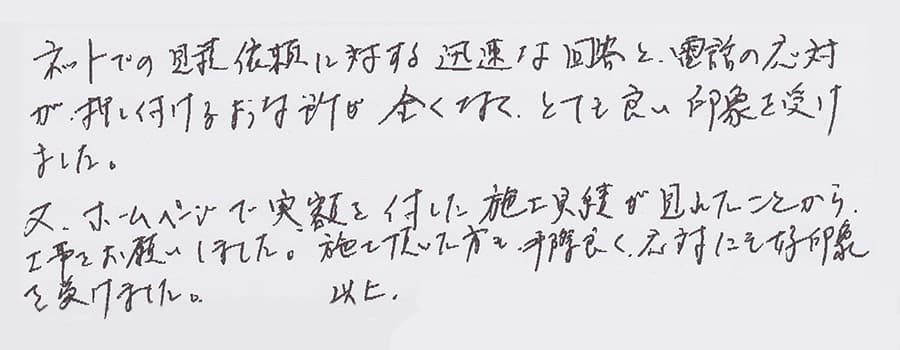 ネットでの見積依頼に対する迅速な回答と、電話の応対
が、押し付けるような所が全くなく、とても良い印象を受け
ました。
又、ホームページで実額を付した施工実績が見れたことから、
工事をお願いしました。施工頂いた方も手際良く、応対にも好印象
を受けました。 以上.